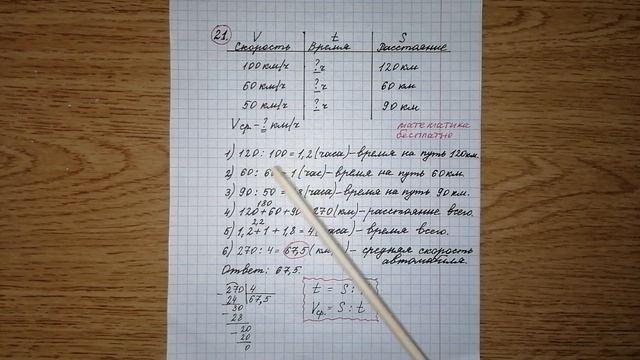 21. V t S
Скорость Время Расстояние
100 км/ч ? ч 120 км
60 км/ч ? ч 60 км
50 км/ч ? ч 90 км
Vср - ? км/ч
математика
бесплатно
1) 120 : 100 = 1,2 (часа) - время на путь 120 км.
2) 60 : 60 = 1 (час) - время на путь 60 км.
3) 90 : 50 = 8 (часа) - время на путь 90 км.
180
4) 120 + 60 + 90 = 270 (км) - расстояние всего.
2,2
5) 1,2 + 1 + 1,8 = 4 (часа) - время всего.
6) 270 : 4 = 67,5 (км/ ) - средняя скорость
автомобиля.
Ответ: 67,5.
270 4
- 24 67,5
- 30
28
- 20
20
0
t = S :
Vср. = S : t